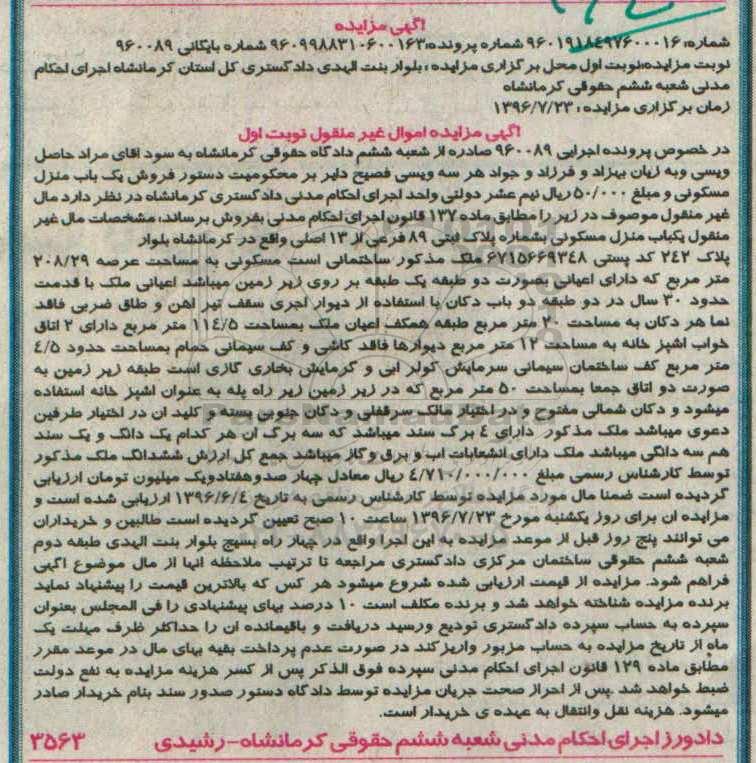 آگهی مزایده
شماره: ۹۶۰۱۹۱۸۴۹۷۶۰۰۰۱۶ شماره پرونده: ۹۶۰۹۹۸۸۳۱۰۶۰۰۱۶۳ شماره بایگانی ۹۶۰۰۸۹
نوبت مزایده: نوبت اول محل برگزاری مزایده: بلوار بنت الهدی دادگستری کل استان کرمانشاه اجرای احکام
مدنی شعبه ششم حقوقی کرمانشاه
زمان برگزاری مزایده: ۱۳۹۶/۷/۲۳
آگهی مزایده اموال غیر منقول نوبت اول
در خصوص پرونده اجرایی ۹۶۰۰۸۹ صادره از شعبه ششم دادگاه حقوقی کرمانشاه به سود آقای مراد حاصل
ویسی و به زیان بهزاد و فرزاد و جواد هر سه ویسی فصیح دایر بر محکومیت دستور فروش یک باب منزل
مسکونی و مبلغ ۵۰/۰۰۰ ریال نیم عشر دولتی واحد اجرای احکام مدنی دادگستری کرمانشاه در نظر دارد مال
غیر منقول موصوف در زیر را مطابق ماده ۱۳۷ قانون اجرای احکام مدنی بفروش برساند: مشخصات مال غیر
منقول یکباب منزل مسکونی بشماره پلاک ثبتی ۸۹ فرعی از ۱۳ اصلی واقع در کرمانشاه بلوار
پلاک ۲۴۲ کد پستی ۶۷۱۵۶۶۹۳۴۸ ملک مذکور ساختمانی است مسکونی به مساحت عرصه ۲۰۸/۲۹
متر مربع که دارای اعیانی بصورت دو طبقه یک طبقه بر روی زیر زمین میباشد اعیانی ملک با قدمت
حدود ۳۰ سال در دو طبقه دو باب دکان با استفاده از دیوار آجری سقف تیر آهن و طاق ضربی فاقد
نما هر دکان به مساحت ۲۰ متر مربع طبقه همکف اعیان ملک بمساحت ۱۱۴/۵ متر مربع دارای ۲ اتاق
خواب آشپز خانه به مساحت ۱۲ متر مربع دیوارها فاقد کاشی و کف سیمانی حمام بمساحت حدود ۴/۵
متر مربع کف ساختمان سیمانی سرمایش کولر آبی و گرمایش بخاری گازی است طبقه زیر زمین به
صورت دو اتاق جمعا بمساحت ۵۰ متر مربع که در زیر زمین زیر راه پله به عنوان آشپز خانه استفاده
میشود و دکان شمالی مفتوح و در اختیار مالک سرقفلی و دکان جنوبی بسته و کلید آن در اختیار طرفین
دعوی میباشد ملک مذکور دارای ۴ برگ سند میباشد که سه برگ آن هر کدام یک دانگ و یک سند
هم سه دانگی میباشد ملک دارای انشعابات آب و برق و گاز میباشد جمع کل ارزش ششدانگ ملک مذکور
توسط کارشناس رسمی مبلغ ۴/۷۱۰/۰۰۰/۰۰۰ ریال معادل چهار صدوهفتادویک میلیون تومان ارزیابی
گردیده است ضمنا مال مورد مزایده توسط کارشناس رسمی به تاریخ ۱۳۹۶/۶/۴ ارزیابی شده است و
مزایده آن برای روز یکشنبه مورخ ۱۳۹۶/۷/۲۳ ساعت ۱۰ صبح تعیین گردیده است طالبین و خریداران
می توانند پنج روز قبل از موعد مزایده به این اجرا واقع در چهار راه بسیج بلوار بنت الهدی طبقه دوم
شعبه ششم حقوقی ساختمان مرکزی دادگستری مراجعه تا ترتیب ملاحظه آنها از مال موضوع آگهی
فراهم شود. مزایده از قیمت ارزیابی شده شروع میشود هر کس که بالاترین قیمت را پیشنهاد نماید
برنده مزایده شناخته خواهد شد و برنده مکلف است ۱۰ درصد بهای پیشنهادی را فی المجلس بعنوان
سپرده به حساب سپرده دادگستری تودیع ورسید دریافت و باقیمانده آن را حداکثر ظرف مهلت یک
ماه از تاریخ مزایده به حساب مزبور واریز کند در صورت عدم پرداخت بقیه بهای مال در موعد مقرر
مطابق ماده ۱۲۹ قانون اجرای احکام مدنی سپرده فوق الذکر پس از کسر هزینه مزایده به نفع دولت
ضبط خواهد شد .پس از احراز صحت جریان مزایده توسط دادگاه دستور صدور سند بنام خریدار صادر
میشود. هزینه نقل وانتقال به عهده ی خریدار است.
دادورز اجرای احکام مدنی شعبه ششم حقوقی کرمانشاه-رشیدی ۳۵۶۳